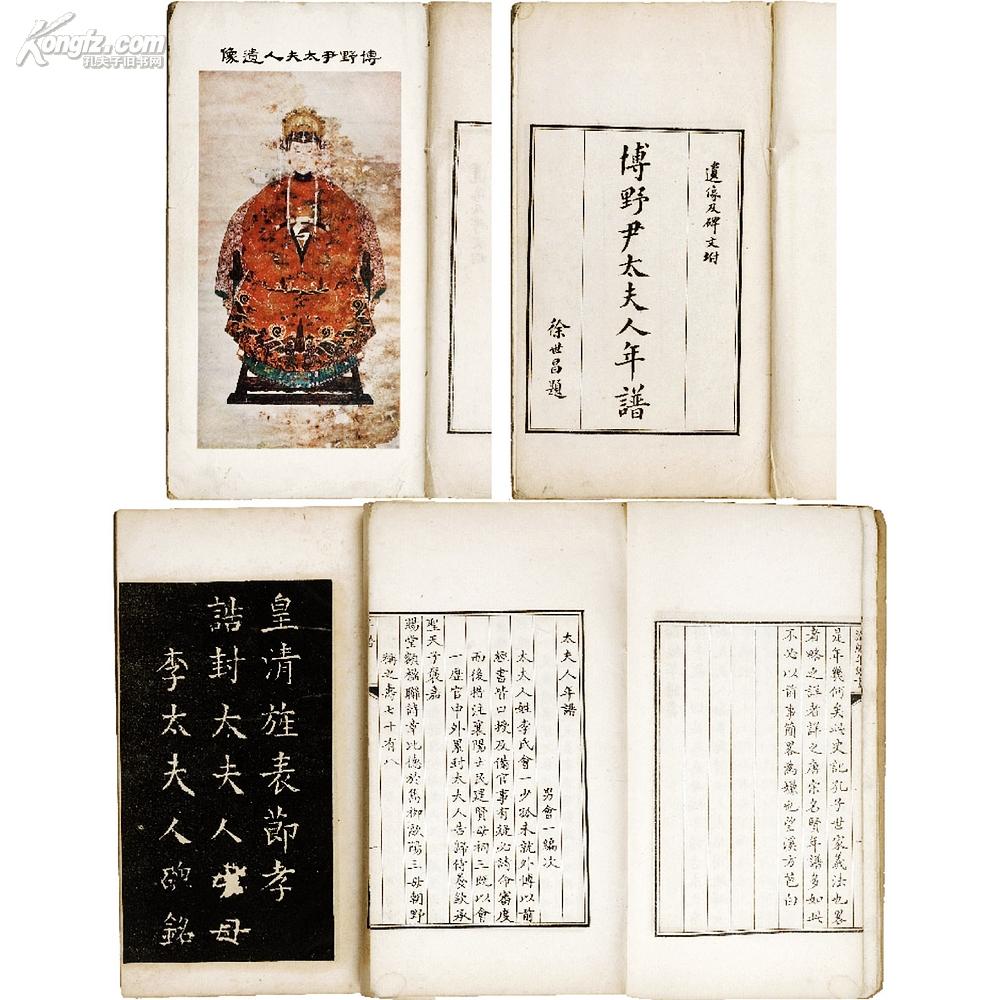 Kongfz.com
孔夫子旧书网
博野尹太夫人遗像
遺像及碑文坿
博野尹太夫人年譜
徐世昌題
皇清旌表節孝
誥封太夫人
母
李太夫人
銘
太夫人年譜
男會一編次
太夫人姓李氏會一少孤未就外傅以前
經書皆口授及備官事有疑必請命審度
而後措注襄陽士民建賢母祠三既以會
一歷官中外累封太夫人告歸侍養欽承
聖天子褒嘉
賜堂額楹聯詩章比德於雋柳歐陽三母朝野
稱之壽七十有八
是年幾何矣此史記孔子世家義法也畧
者略之詳者詳之唐宋名賢年譜多如此
不必以前事簡畧為嫌也望溪方苞白